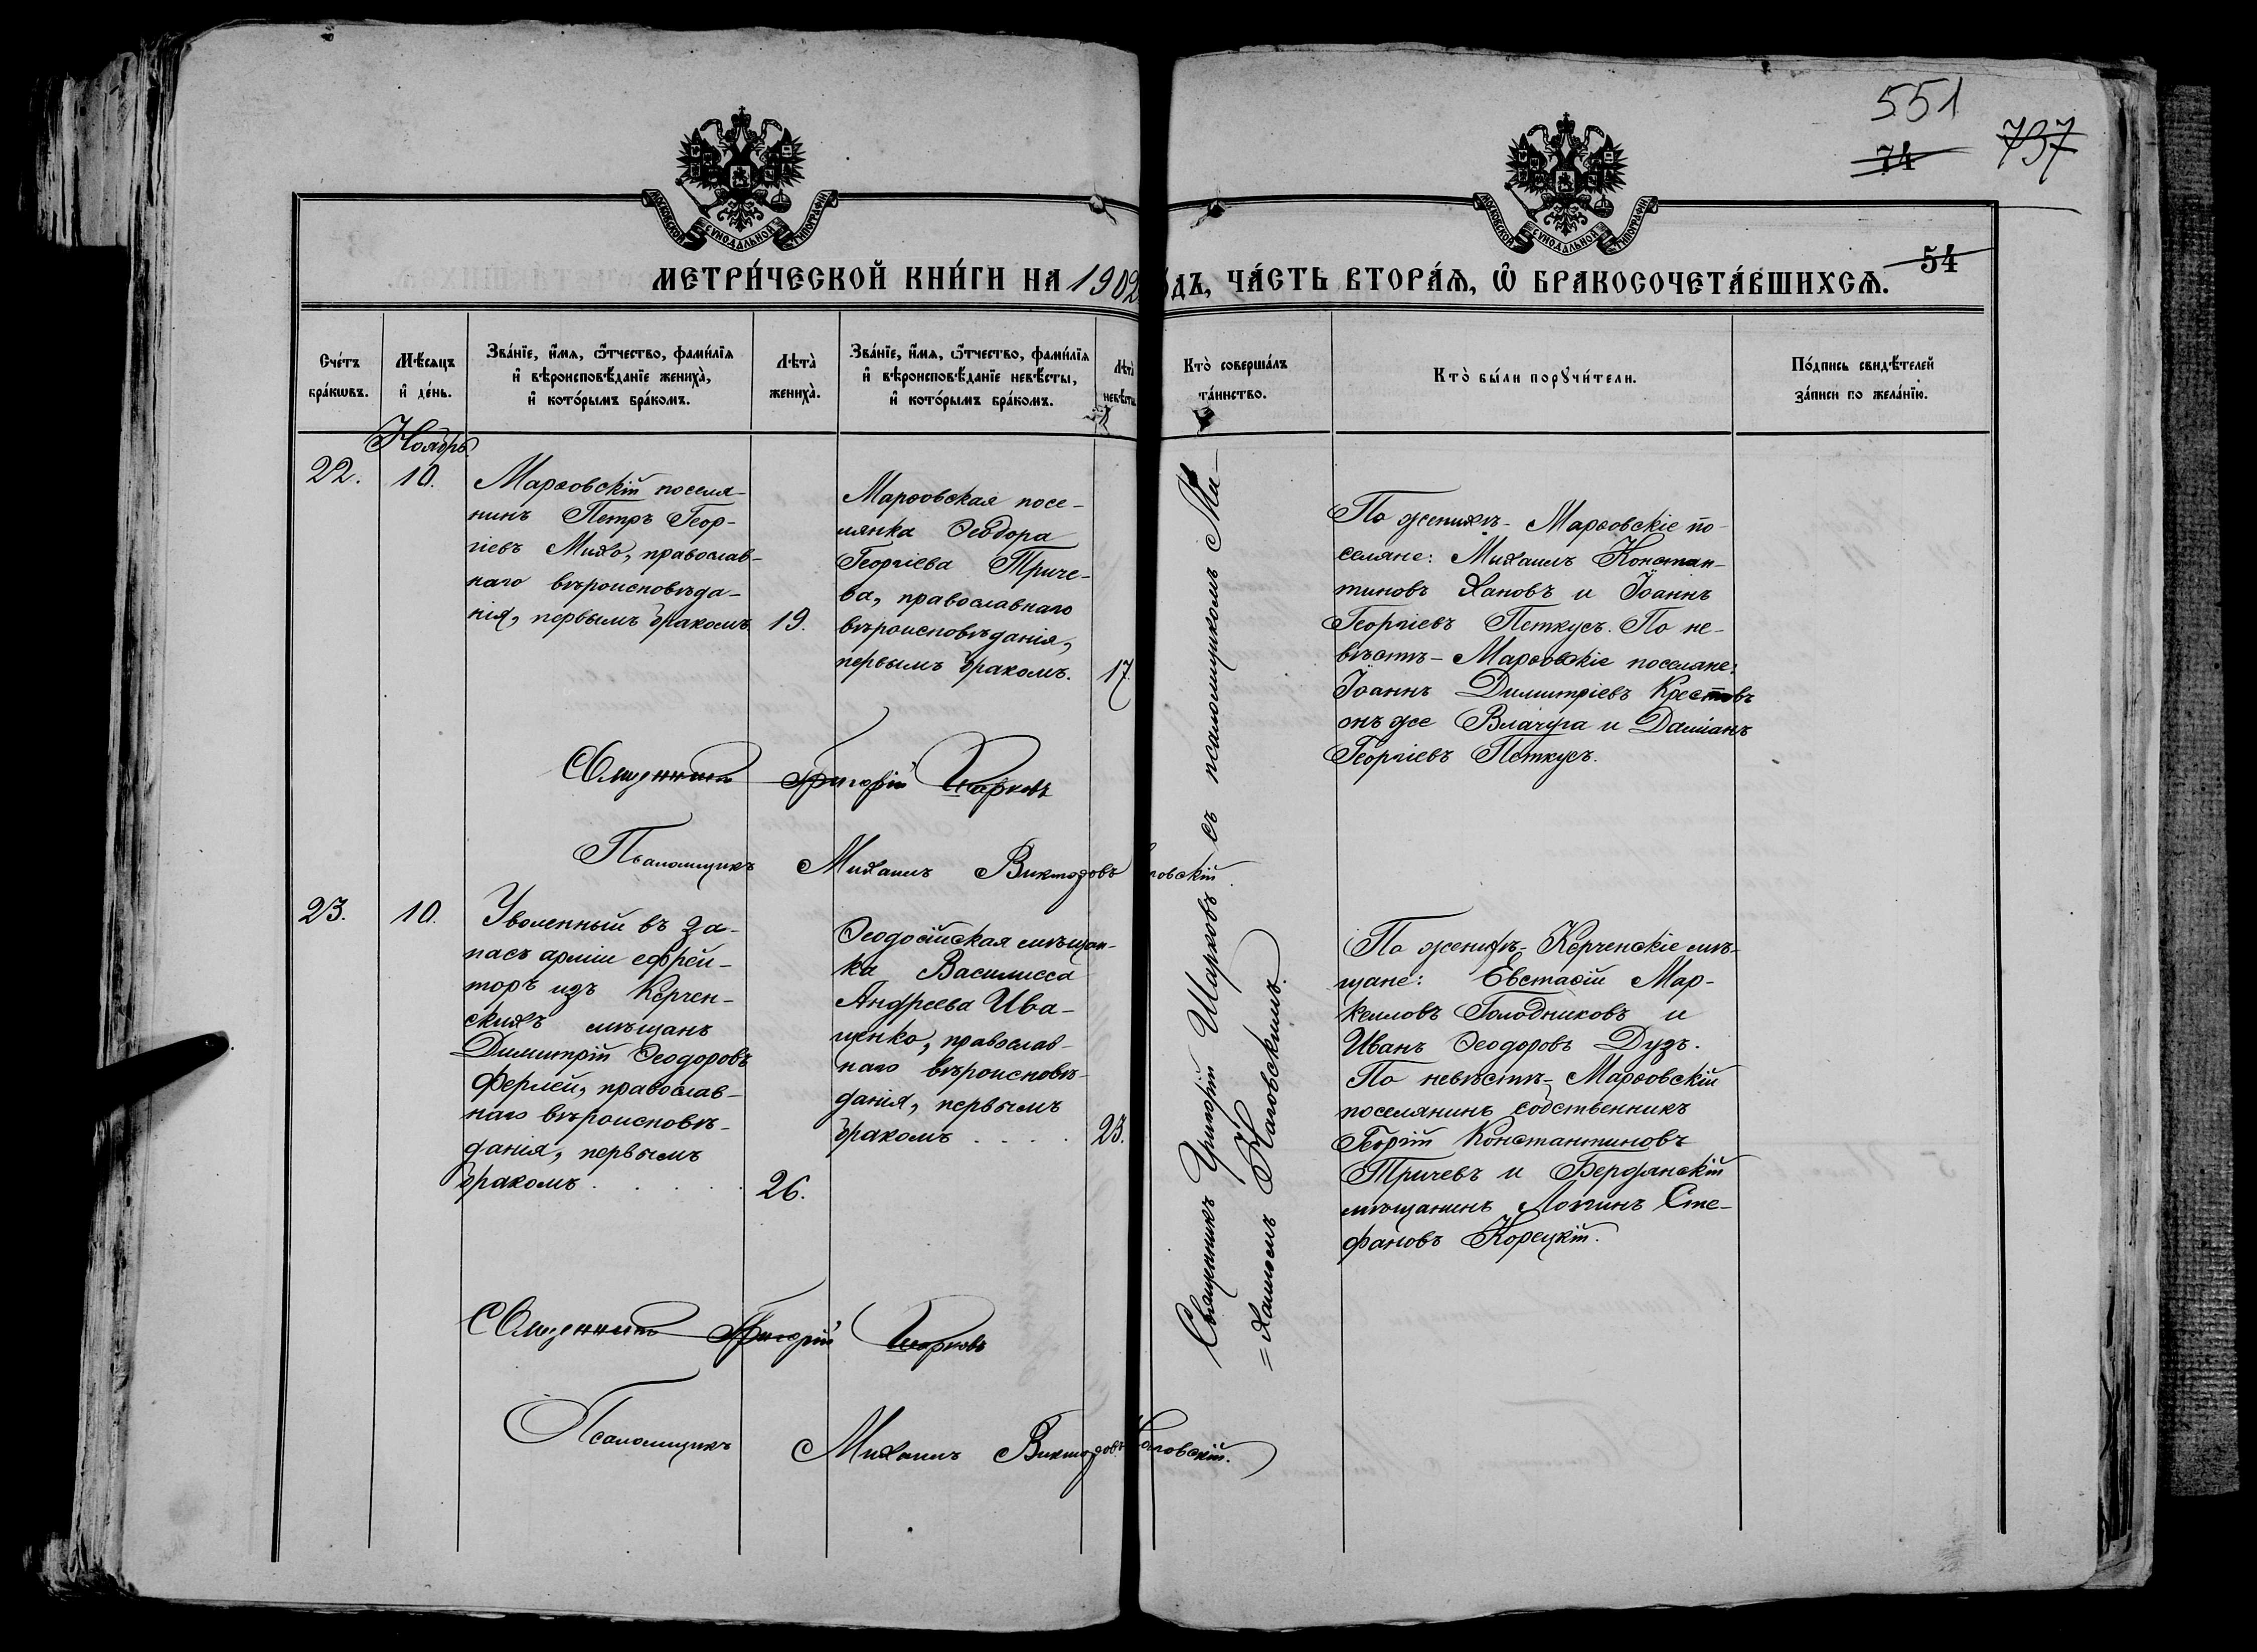 551
74
737
МОСКОВСКОЙ СѴНОДАЛЬНОЙ ТИПОГРАФІИ
МОСКОВСКОЙ СѴНОДАЛЬНОЙ ТИПОГРАФІИ
54
МЕТРИ́ЧЕСКОЙ КНИ́ГИ НА 1902 ́ДЪ, ЧА́СТЬ ВТОРА́Я, Ѽ БРАКОСОЧЕТА́ВШИХСѦ.
Сче́тъ
бра́кѡвъ.
Мѣ́сяцъ
и҆ де́нь.
Зва́нїе, и҆́мѧ, ѻ҆́тчество, фами́лїѧ
и҆ вѣроисповѣ́данїе жениха̀,
и҆ кото́рымъ бра́комъ.
Лѣта̀
жениха̀.
Зва́нїе, и҆́мѧ, ѻ҆́тчество, фами́лїѧ
и҆ вѣроисповѣ́данїе невѣ́сты,
и҆ кото́рымъ бра́комъ.
Лѣта̀
невѣ́сты
Кто̀ соверша́лъ
та́инство.
Кто̀ бы́ли порꙋчи́тели.
По́дпись свидѣ́телей
за́писи по жела́нїю.
Ноябрь.
22.
10.
Марѳовскій поселя-
нинъ Петръ Геор-
гіевъ Михо, православ-
наго вѣроисповѣда-
нія, первымъ бракомъ
19.
Марѳовская посе-
лянка Ѳеодора
Георгіева Триче-
ва, православнаго
вѣроисповѣданія,
первымъ бракомъ.
17.
Священникъ Григорій Шарковъ съ псаломщикомъ Ми-
=хаиломъ Каговскимъ.
По женихѣ - Марѳовскіе по-
селяне: Михаилъ Констан-
тиновъ Хановъ и Іоаннъ
Георгіевъ Петкусъ. По не-
вѣстѣ - Марѳовскіе поселяне:
Іоаннъ Димитріевъ Крестовъ
онъ же Влачуга и Даміанъ
Георгіевъ Петкусъ.
Священникъ Григорій Шарковъ
Псаломщикъ Михаилъ Викторовъ говскій
23.
10.
Уволенный въ за-
пасъ арміи ефрей-
торъ изъ Керчен-
скихъ мѣщанъ
Димитрій Ѳеодоровъ
Ферлей, православ-
наго вѣроисповѣ-
данія, первымъ
бракомъ . . . .
26.
Ѳеодосійская мѣщан-
ка Василисса
Андреева Ива-
щенко, православ-
наго вѣроисповѣ-
данія, первымъ
бракомъ . . . .
23.
По женихѣ - Керченскіе мѣ-
щане: Евстаѳій Мар-
келловъ Голодниковъ и
Иванъ Ѳеодоровъ Дузъ.
По невѣстѣ - Марѳовскій
поселянинъ собственникъ
Георгій Константиновъ
Тричевъ и Бердянскій
мѣщанинъ Логинъ Сте-
фановъ Корецкій.
Священникъ Григорій Шарковъ
Псаломщикъ Михаилъ Викторовъ Каговскій.